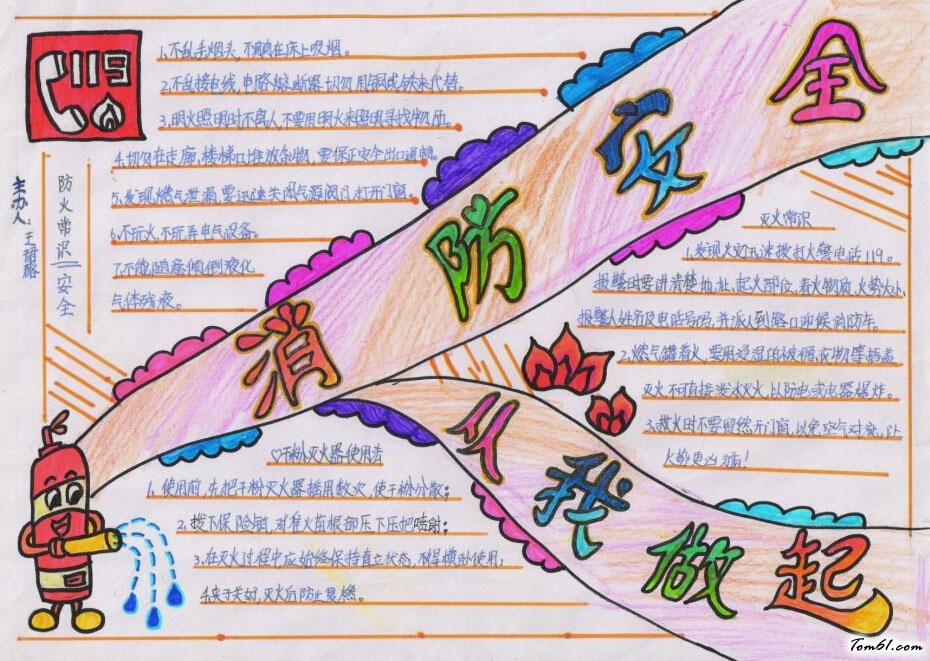 119
1.不乱丢烟头,不躺在床上吸烟。
2.不乱接电线,电路熔断器切勿用铜或铁来代替。
3.明火照明时不离人,不要用明火来照明寻找物质。
4.切勿在走廊,楼梯口堆放杂物,要保正安全出口通畅。
5.发现燃气泄漏,要迅速关闭气源阀门,打开门窗。
6.不玩火,不玩弄电气设备。
7.不能随意倾倒液化
气体残液。
防火常识 安全
主办人:王
消防安全
从我做起
灭火常识
1.发现火灾迅速拨打火警电话119。
报警时要讲清楚地址,起火部位,着火物质,火势大小,
报警人姓名及电话号码,并派人到路口迎候消防车。
2.燃气罐着火,要用浸湿的被褥,衣物等捂盖
灭火不可直接泼水灭火,以防电或电器爆炸。
3.救火时不要贸然开门窗,以免空气对流,让
火势更凶猛!
♡干粉灭火器使用法
1.使用前,先把干粉灭火器摇用数次,使干粉分散;
2.拨下保险销,对准火苗根部压下压把喷射;
3.在灭火过程中应始终保持直立状态,横卧使用;
4.灭火后防止复燃。
Tom61.com